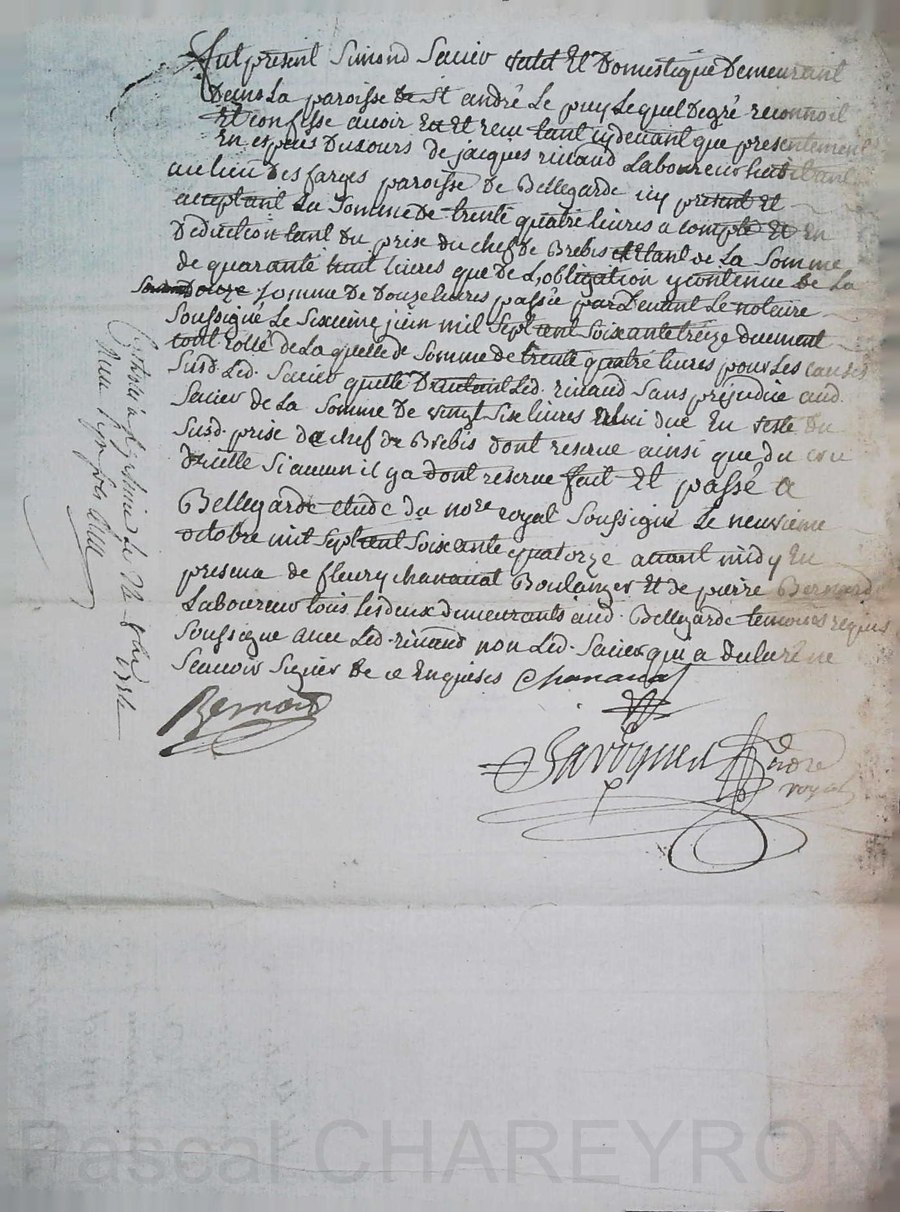 fut present Simond Sacier valet Et Domestique Demeurant
Dans La paroisse de St andré Le puy Lequel Degré reconnoit
Et confesse avoir Eu Et reçu tant cydevant que presentement
En espèces Ducours de jacques rinaud Laboureur habitant
au lieu des farges paroisse De Bellegarde icy present Et
acceptant La Somme De trente quatre livres a compte Et En
Déduction tant Du prise du chef De Brebis Etant de La Somme
de quarante huit livres que de L'obligation y contenue De La
Douze Somme De Douze livres passée par Devant Le notaire
Soussigné Le Sixième juin mil Sept cent Soixante treize duement
controllé De La quelle de Somme de trente quatre livres pour Les causes
Susd. Led. Sacier quitte D'autant Led. rinaud Sans préjudice aud.
Sacier de La Somme De vingt Six livres a lui due En reste du
Susd. prise de chef de Brebis dont reserve ainsi que du cru
D'icelle Si aucun il y a dont reserve fait Et passé a
Bellegarde etude du nore royal Soussigné Le neuvième
octobre mil Sept cent Soixante quatorze avant midy En
presence de fleury chanavat Boulanger Et de pierre Bernard
Laboureur tous Les deux demeurants aud. Bellegarde temoins requis
Soussigné avec Led. rinaud non Led. Sacier qui a déclaré ne
Scavoir Signer De ce Enquises Chanavat
Bernard
nore
royal
Pascal CHAREYRON